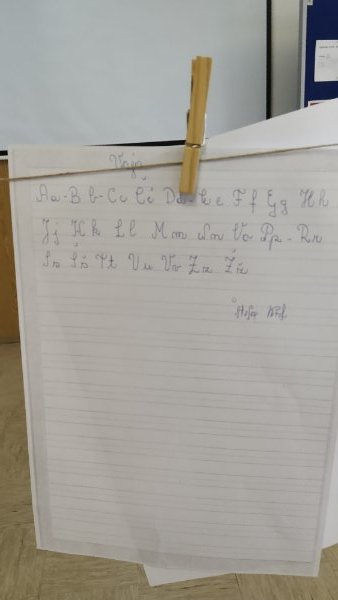 Vaja
Aa - Bb - Cc Čč Dd - Ee Ff Gg Hh
Jj Kk Ll Mm Nn Oo Pp - Rr
Ss Šš Tt Uu Vv Zz Žž